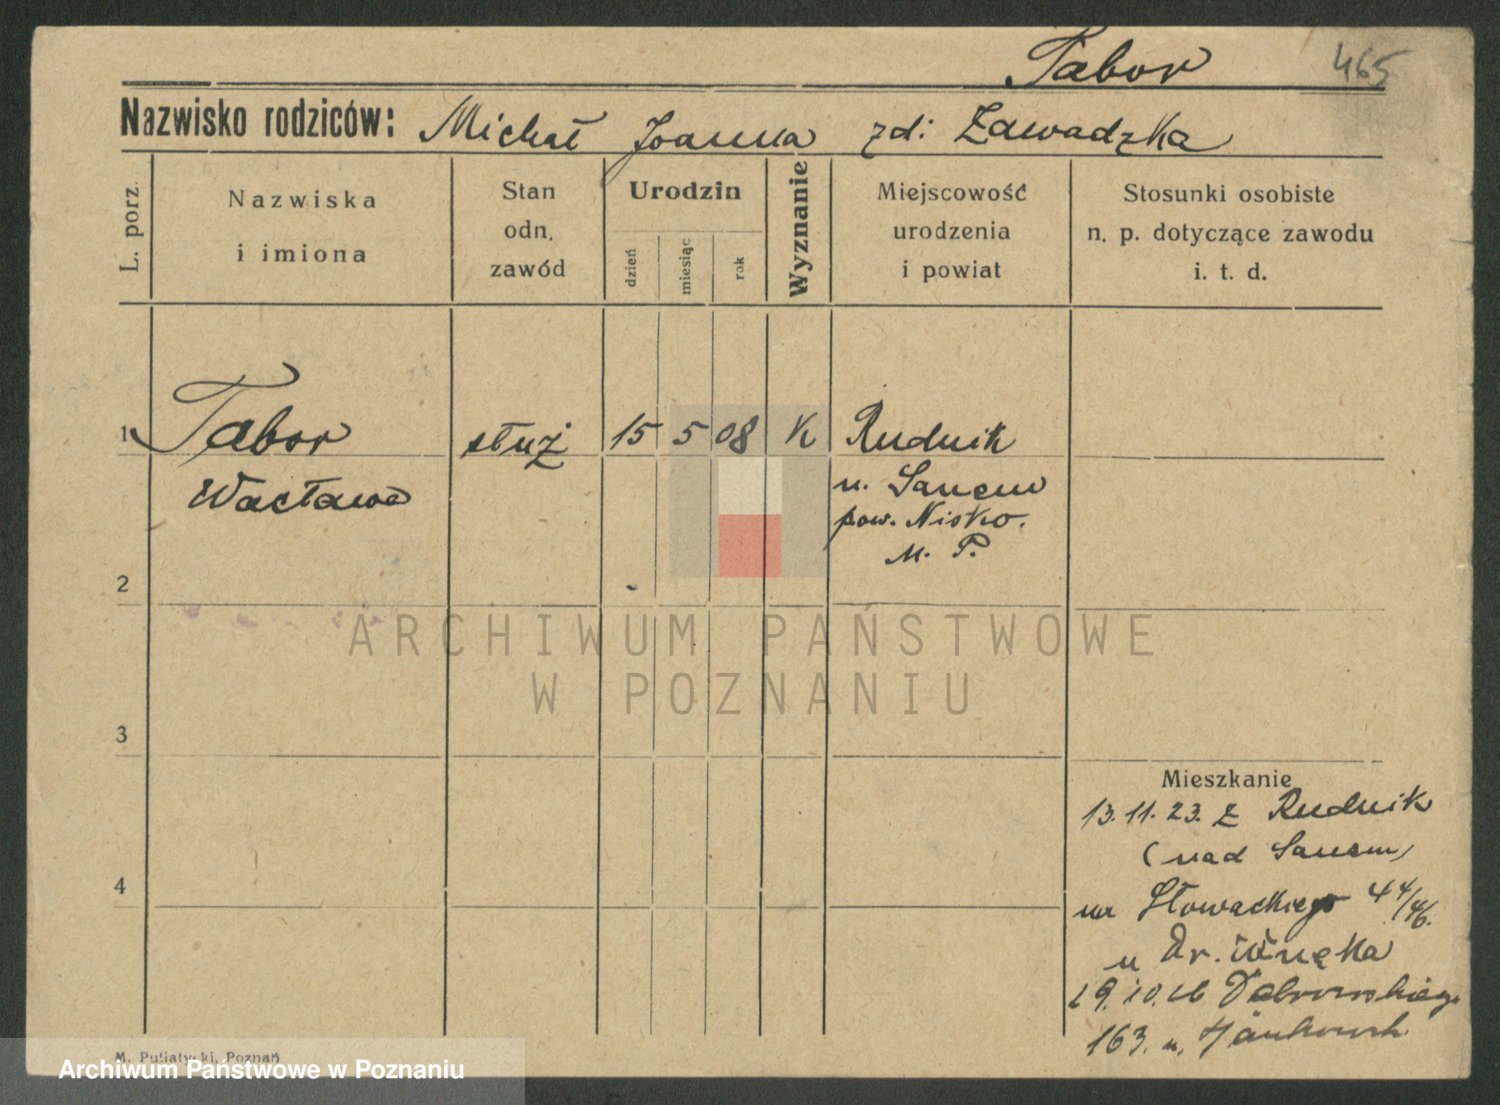 Tabor 465
Nazwisko rodziców: Michał Joanna zd: Zawadzka
L. porz.
Nazwiska
i imiona
Stan
odn.
zawód
Urodzin
dzień
miesiąc
rok
Wyznanie
Miejscowość
urodzenia
i powiat
Stosunki osobiste
n. p. dotyczące zawodu
i. t. d.
1 Tabor służ 15 5 08 K Rudnik
Wacława n. Sanem
pow. Nisko.
M. P.
2
3
4
Mieszkanie
13.11.23. z Rudnik
(nad Sanem)
na Słowackiego 44/46.
u Dr. Wnęka
29.10.26 Dąbrowskiego
163. u.
ARCHIWUM PAŃSTWOWE
W POZNANIU
M. Putiatycki, Poznań
Archiwum Państwowe w Poznaniu